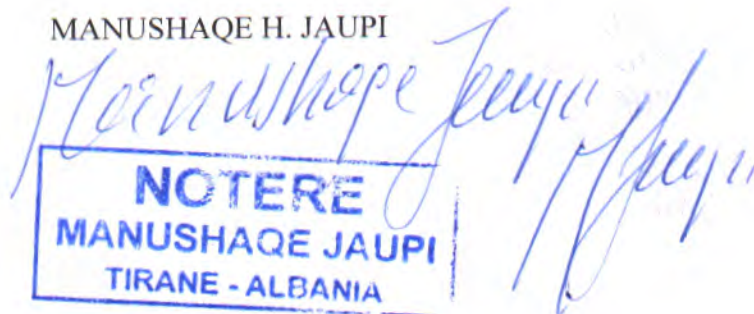 MANUSHAQE H. JAUPI
Manushaqe Jaupi
MJaupi
NOTERE
MANUSHAQE JAUPI
TIRANE - ALBANIA